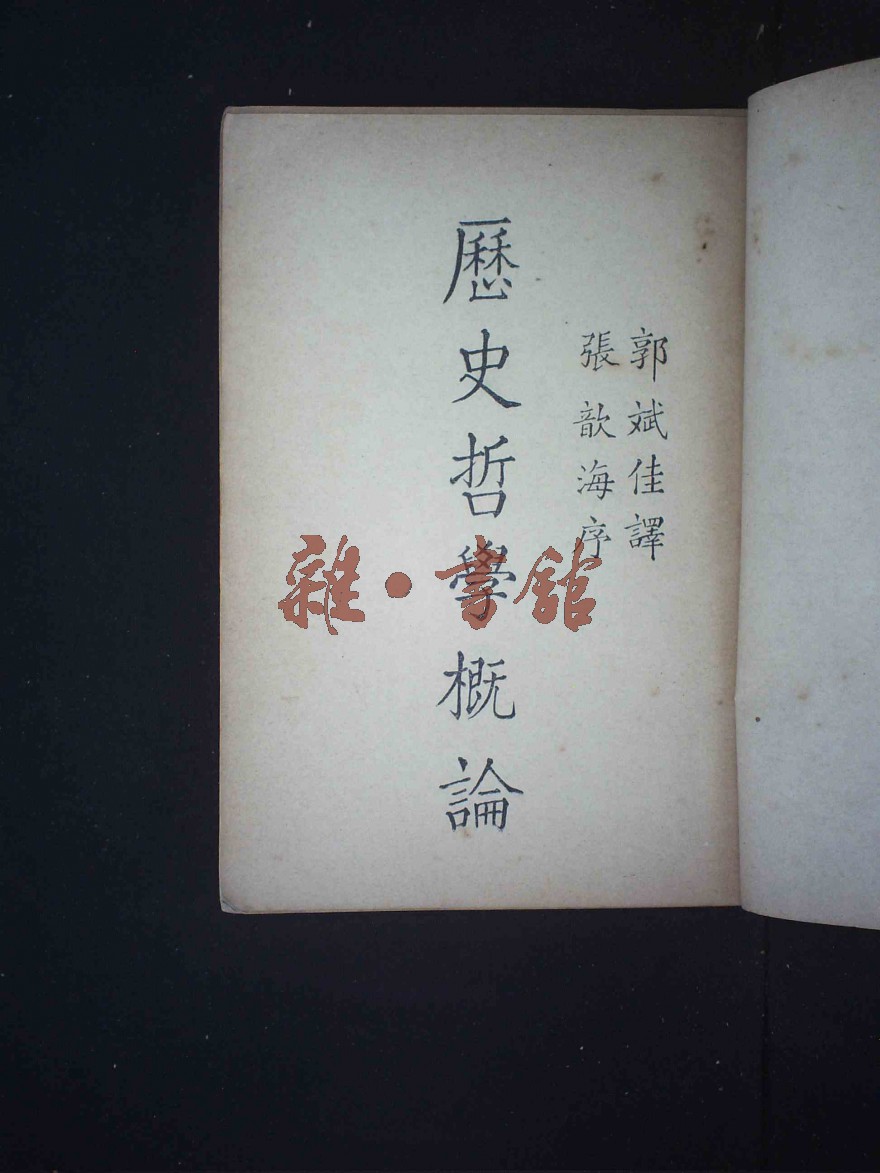 郭斌佳譯
張歆海序
歷史哲學概論
雜·書館